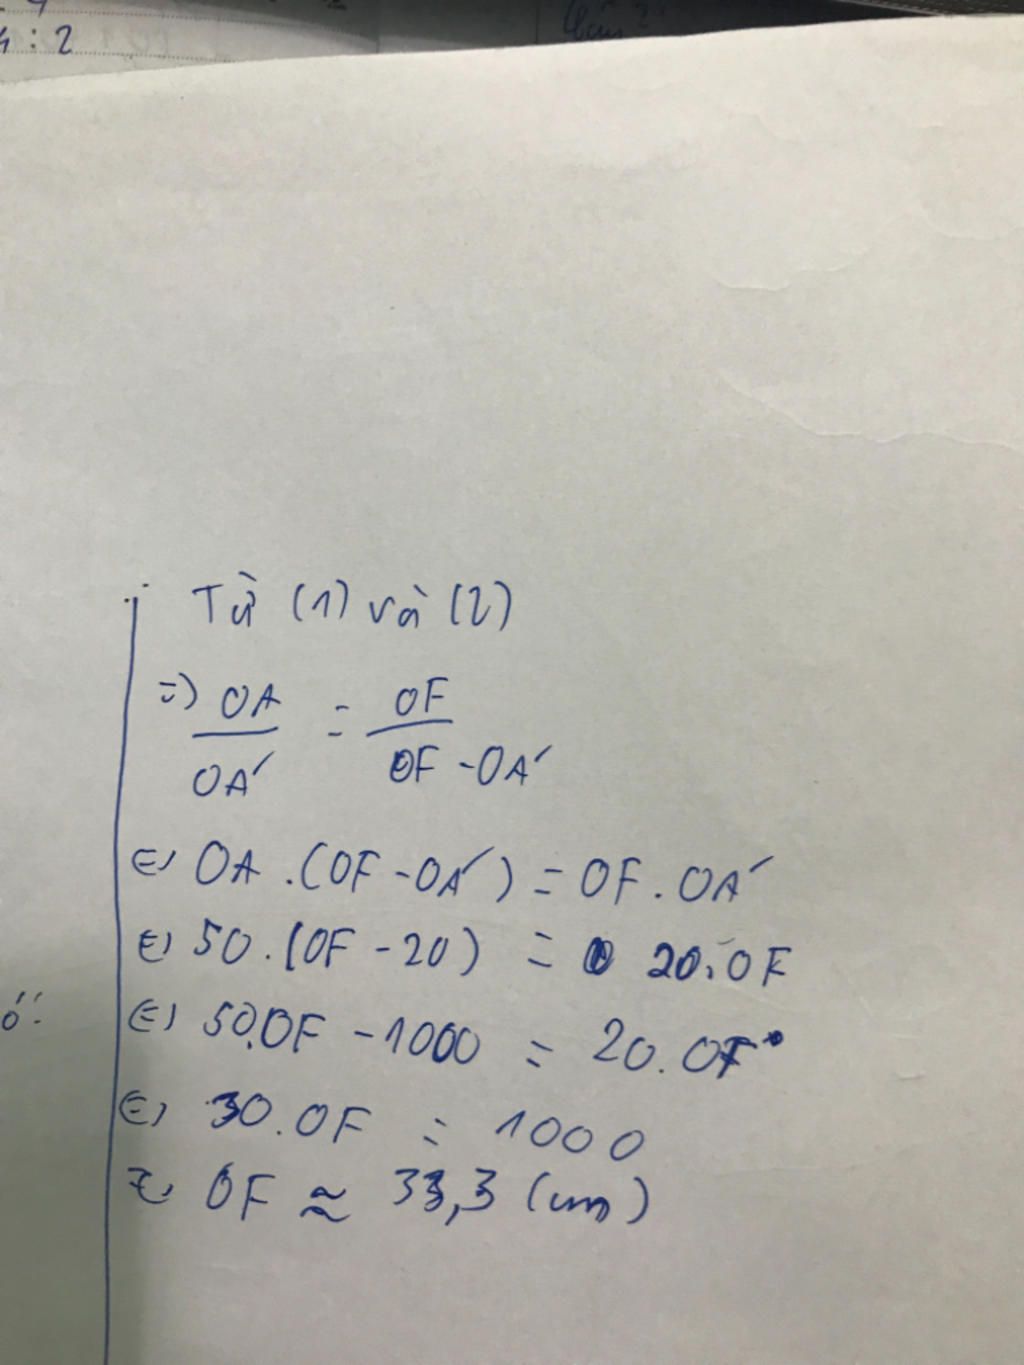 : 2
Từ (1) và (2)
=) OA/OA' = OF/OF - OA'
(=) OA .(OF - OA') = OF . OA'
(=) 50 .(OF - 20) = 20.OF
(=) 50.OF - 1000 = 20.OF
(=) 30.OF = 1000
(=) OF ≈ 33,3 (cm)